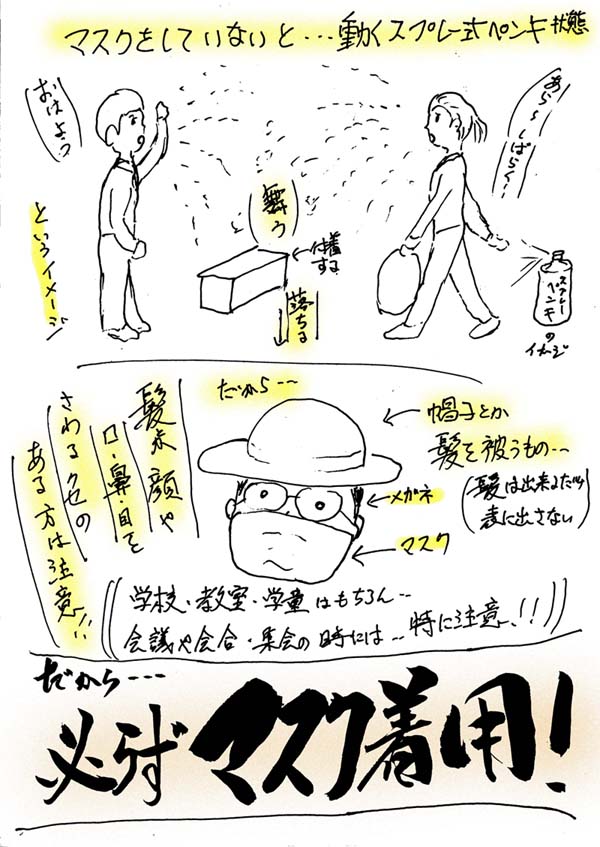 マスクをしていないと…動くスプレー式ペンキ状態
おはよう
あら〜しばらく!
舞う
付着する
落ちる
というイメージ
スプレーペンキ
のイメージ
だから…
帽子とか
髪を被うもの…
(髪は出来るだけ
表に出さない)
メガネ
マスク
髪や顔や
口・鼻・目を
さわるクセの
ある方は注意!!
学校・教室・学童はもちろん…
会議や会合・集会の時には…特に注意、!!
だから…
必らず マスク着用!